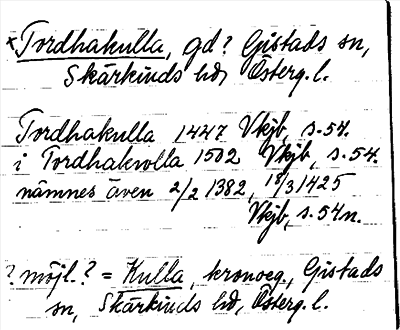 *Tordhakulla, gd? Gistads sn,
Skärkinds hd, Österg. l.
Tordhakulla 1447 Vkjb, s. 54.
i Tordhakwlla 1502 Vkjb, s. 54.
nämnes även 2/2 1382, 18/3 1425
Vkjb, s. 54 n.
? möjl. ? = Kulla, kronoeg., Gistads
sn, Skärkinds hd, Österg. l.